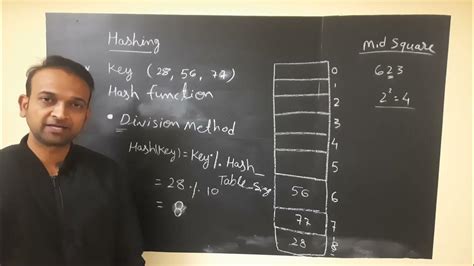 Hashing
* Key (28, 56, 77)
Hash function
• Division Method
Hash(Key) = Key % Hash_
Table_Size
= 28 % 10
= 8
0
1
2
3
4
5
56 6
77 7
28 8
Mid Square
623
2² = 4